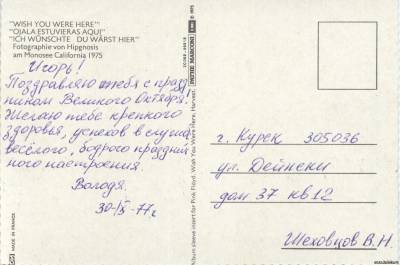 "WISH YOU WERE HERE"
"OJALA ESTUVIERAS AQUI"
"ICH WÜNSCHTE DU WÄRST HIER"
Fotographie von Hipgnosis
am Monosee California 1975
Игорь!
Поздравляю тебя с празд
ником Великого Октября.
Желаю тебе крепкого
здоровья, успехов в службе
весёлого, бодрого празднич
ного настроения.
Володя
30-IX-77г
MADE IN FRANCE
PATHE MARCONI
Album sleeve insert for Pink Floyd. Wish You Were Here. Harvest.
г. Курск 305036
ул. Дейнеки
дом 37 кв 12
Шеховцов В.Н.